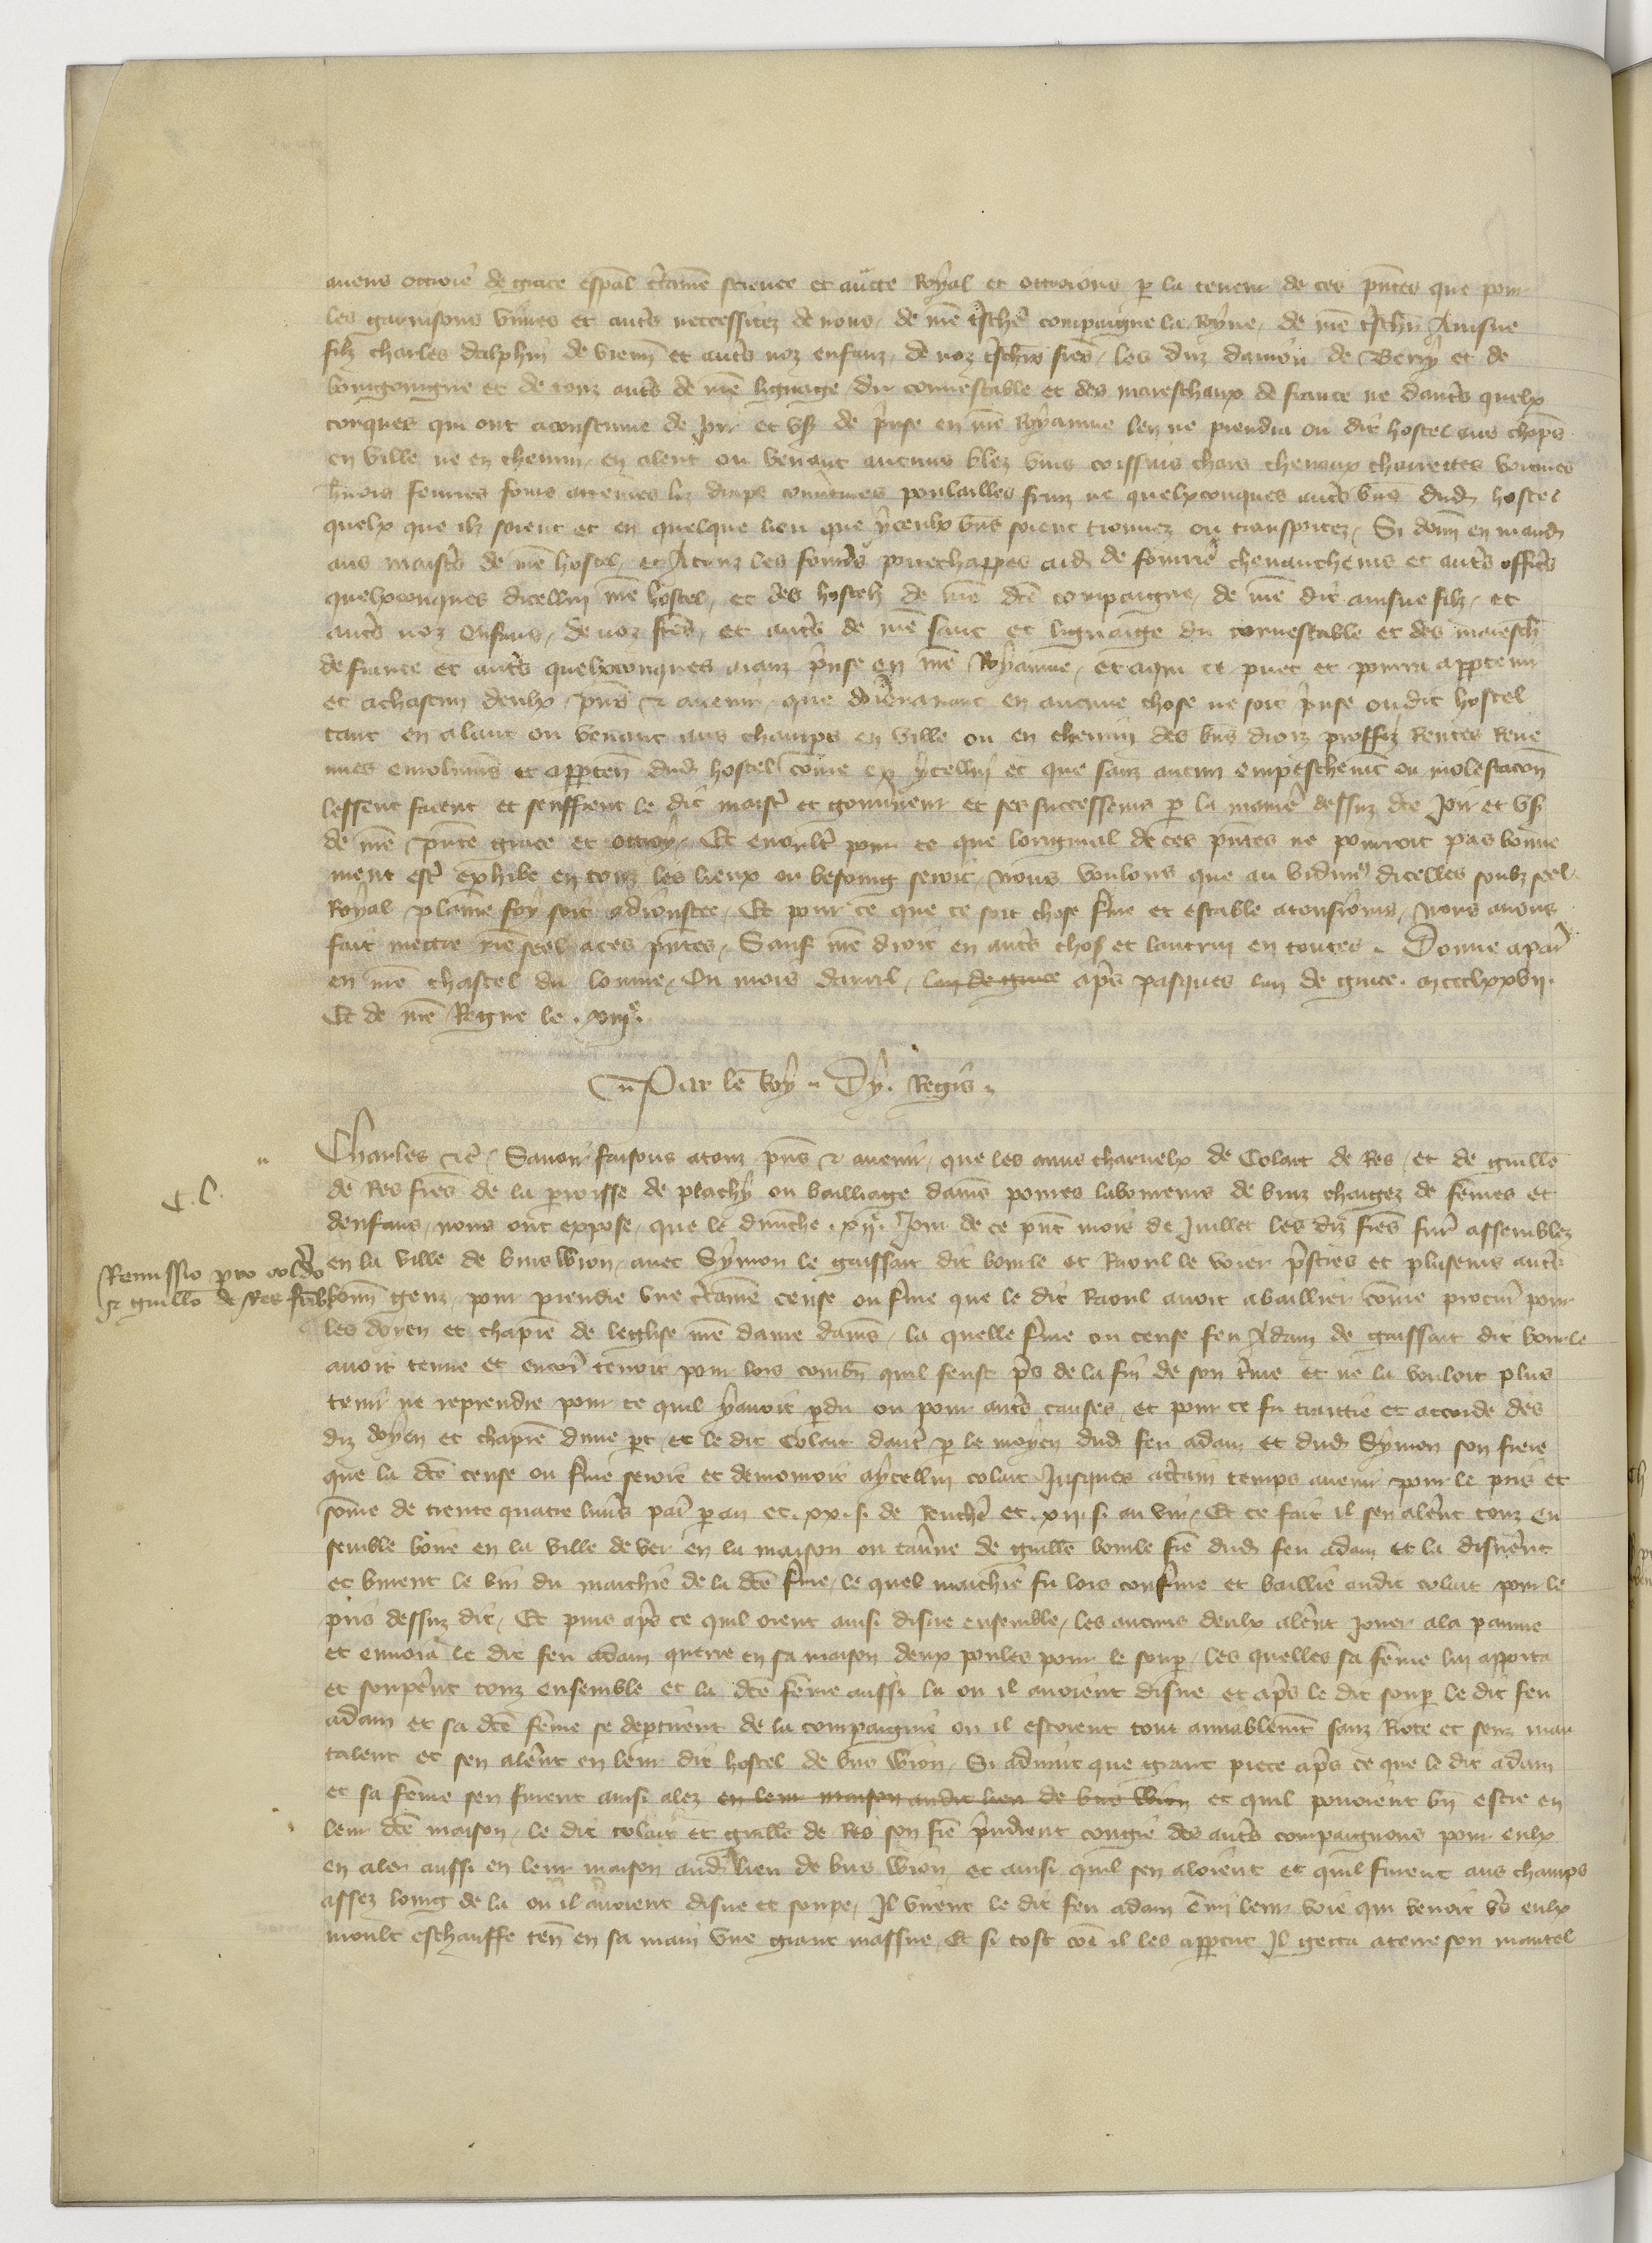 avons ottroié de grace espal ctaine science et autte Royal et ottroions p la teneur de ces pntes que pour
les garnisons vivres et autrs neccessitez de nous, de nre treschere compaigne la Royne, de nre treschr Ainsne
filz charles dalphin de vienn et autrs noz enfanz, de noz treschrs freres, les dux danjou de Berry et de
bourgoingne et de touz autrs de nre lignage du connestable et des mareschaux de france ne dautrs quelx
conques qui ont acoustume de Joir et vser de prise en nre Royaume len ne prendra ou dit hostel aus champs
en ville ne en chemin, en alent ou venant aucuns blez vins coissins chars chevaux charrettes voitures
harnois feurres foins avenes liz draps couvtures poulailles fruiz ne quelxconques autrs biens dud hostel
quelx que ilz soient et en quelque lieu que yceulx biens soient trouvez ou transportez, Si donn en mand
aus maistres de nre hostel, et Atouz les fourrs pourechappes aid de fourrie chevaucheurs et autrs offics
quelxconques dicellui nre hostel, et des hostelz de nre dce compaigne, de nre dit ainsne filz, et
autrs noz enfans, de noz freres, et autrs de nre sanc et lignaige du connestable et des maresch
de france et autrs quelxconques aianz prise en nre Royaume, et aqui ce puet et pourra apptenir
et achascun deulx, pns & avenir, que doresenavant en aucune chose ne soit prise oudit hostel
tant en alant ou venant aus champs en ville ou en chemin des biens droiz proffiz Rentes Reve
nues emolumens et apptenn dud hostel come en ycellui et que sanz aucun empeschemt ou molestacon
lessent facent et seuffrent le dit maistr et gouverneur et ses successeurs p la manie dessus dce Joir et vser
de nre pnte grace et ottroy, Et enoultr pour ce que loriginal de ces pntes ne pourroit pas bonne
ment estre exhibe en touz les lieux ou besoing seroit, nous voulons que au vidimus dicelles soubz seel
Royal plaine foy soit adjoustee, Et pour ce que ce soit chose ferme et estable atousjours, nous avons
fait mettre nre seel aces pntes, Sauf nre droit en autrs choses et lautrui en toutes. Donne apar
en nre chastel du louvre, Ou mois davril, lan de grace aprs pasques lan de grace. mccclxxvij.
Et de nre Regne le. xiiije.
Par le Roy. Dy. Regis.
Charles etc, Savoir faisons atouz pns & avenir, que les amis charnelx de Colart de Res, et de guille
de Res freres de la parroisse de plachy ou bailliage damiens povres laboureurs de braz chargez de femes et
denfans, nous ont expose, que le dimenche .xije. Jour de ce pnt mois de Juillet les diz freres furent assemblez
C. C.
en la ville de bus wion, avec Symon le gaissart dit boule et Raoul le voier prestres et plusieurs autrs
Remissio pro colardo
& guillo de Res fratribus
bonn genz, pour prendre vne ctaine cense ou ferme que le dit Raoul avoit abaillier come procur pour
les doyen et chapitre de leglise nre dame damiens, la quelle ferme ou cense feu Adam de gaissart dit boule
avoit tenue et encor tenoit pour lors combn quil feust prs de la fin de son terme et ne la vouloit plus
tenir ne reprendre pour ce quil y avoit perdu ou pour autrs causes, et pour ce fu traittie et accorde des
diz doyen et chapitre dune part et le dit Colart dautr p le moyen dud feu adam et dud Symon son frere
que la dce cense ou ferme seroit et demourroit aycellui colart Jusques actain temps avenir pour le pris et
some de trente quatre livrs par par an et .xx. s. de Renchier et .xij. s. au vin, Et ce fait il sen alerent touz en
semble boire en la ville de ver en la maison ou taverne de guille boule frere dud feu adam et la disnerent
et burent le vin du marchie de la dce ferme, le quel marchie fu lors conferme et baillie audit colart pour le
pris dessus dit, Et puis aprs ce quil orent ainsi disne ensemble, les aucuns deulx alerent jouer ala paume
et envoia le dit feu adam querre en sa maison deux poules pour le souper, les quelles sa feme lui apporta
et souperent touz ensemble et la dce feme aussi la ou il avoient disne et aprs le dit souper le dit feu
adam et sa dce feme se departirent de la compaignie ou il estoient tout amiablemt sanz Riote et senz mau
talent et sen alerent en leur dit hostel de bus wion, Si advint que grant piece aprs ce que le dit adam
et sa feme sen furent ainsi alez en leur maison audit lieu de bus wion et quil povoient bn estre en
leur dce maison, le dit colart et guille de Res son frere prindrent congie des autrs compaignons pour eulx
en aler aussi en leur maison aud lieu de bus wion, et ainsi quil sen aloient et quil furent aus champs
assez loing de la ou il avoient disne et soupe, Il virent le dit feu adam emi leur voie qui venoit vers eulx
moult eschauffe ten en sa main vne grant massue, Et si tost come il les apperceut Il getta aterre son mantel